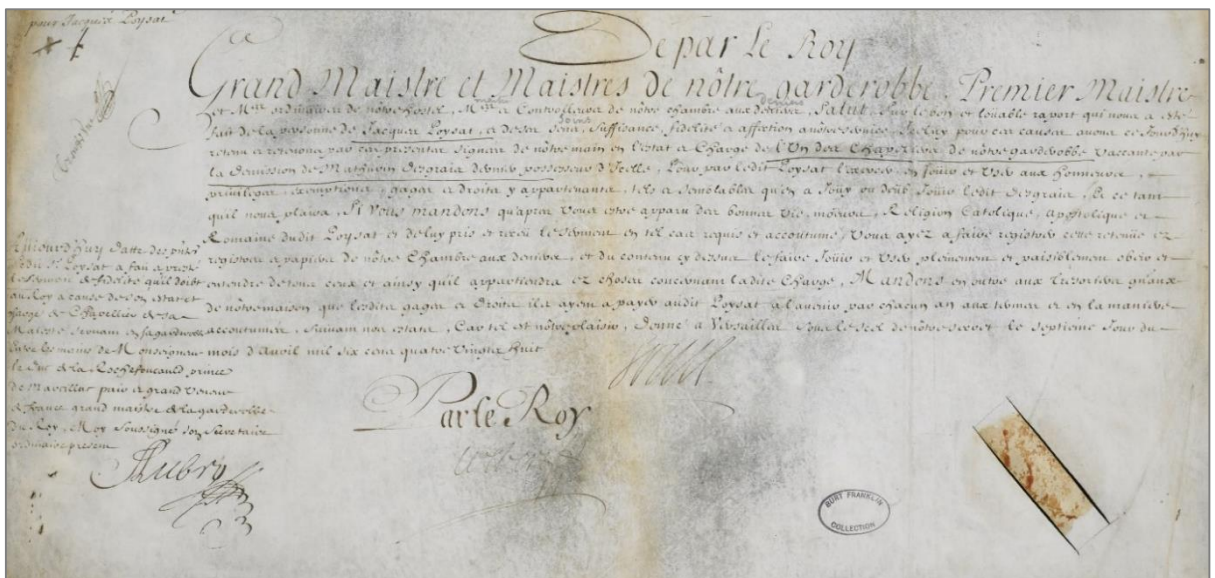 pour Jacques Loysat
De par Le Roy
Grand Maistre et Maistres de nôtre garderobbe Premier Maistre
et ordinaires de nôtre hostel, Controlleur de nôtre chambre aux deniers, Salut, Sur le bon et louable raport qui nous a esté
fait de la personne de Jacques Loysat, et de ses sens, suffisance, fidelité et affection a nôtre service, Iceluy pour ces causes avons ce Jourd'huy
retenu et retenons par ces presentes signées de nôtre main en l'estat et Charge de l'Un des Chapeliers de nôtre garderobbe vaccante par
la demission de Mathurin Desgrais dernier possesseur d'Icelle, Pour par ledit Loysat l'exercer en Jouir et User aux honneurs,
privileges, exemptions, gages et droits y appartenants, tels et semblables qu'en a Jouy ou deub Jouir ledit Desgrais, Et ce tant
quil nous plaira, Si vous mandons qu'apres vous estre apparu des bonnes vie, moeurs, Religion Catolique, apostolique et
Romaine dudit Loysat et deluy pris et receu le serment en tel cas requis et accoutumé, Vous ayez a faire registrer cette retenue ez
registres et papiers de nôtre Chambre aux deniers, et du contenu cy dessus le faire Jouir et User pleinement et paisiblement obeir et
entendre de tous ceux et ainsy qu'il appartiendra ez choses concernant ladite Charge, Mandons en outre aux Tresoriers
de nôtre maison que lesdits gages et Droits ils ayent a payer audit Loysat a l'avenir par chacun an aux termes et en la maniere
accoutumée, Suivant nos estats, Car tel est nôtre plaisir, Donné a Versailles sous le scel de nôtre secret le septieme Jour du
mois d'Avril mil six cens quatre vingts huit
Louis
Par le Roy
Aujourd'huy datte des
Loysat a fait et presté
le serment de fidelité qu'il doibt
au Roy a cause de son estat et
charge de Chapellier de sa
Majesté servant en sa garderobbe
Entre les mains de Monseigneur
le Duc de la Rochefoucauld prince
de Marcillac pair et grand Veneur
de France grand maistre de la garderobbe
du Roy, Moy soussigné son Secretaire
ordinaire present
Aubry
BURT FRANKLIN
COLLECTION